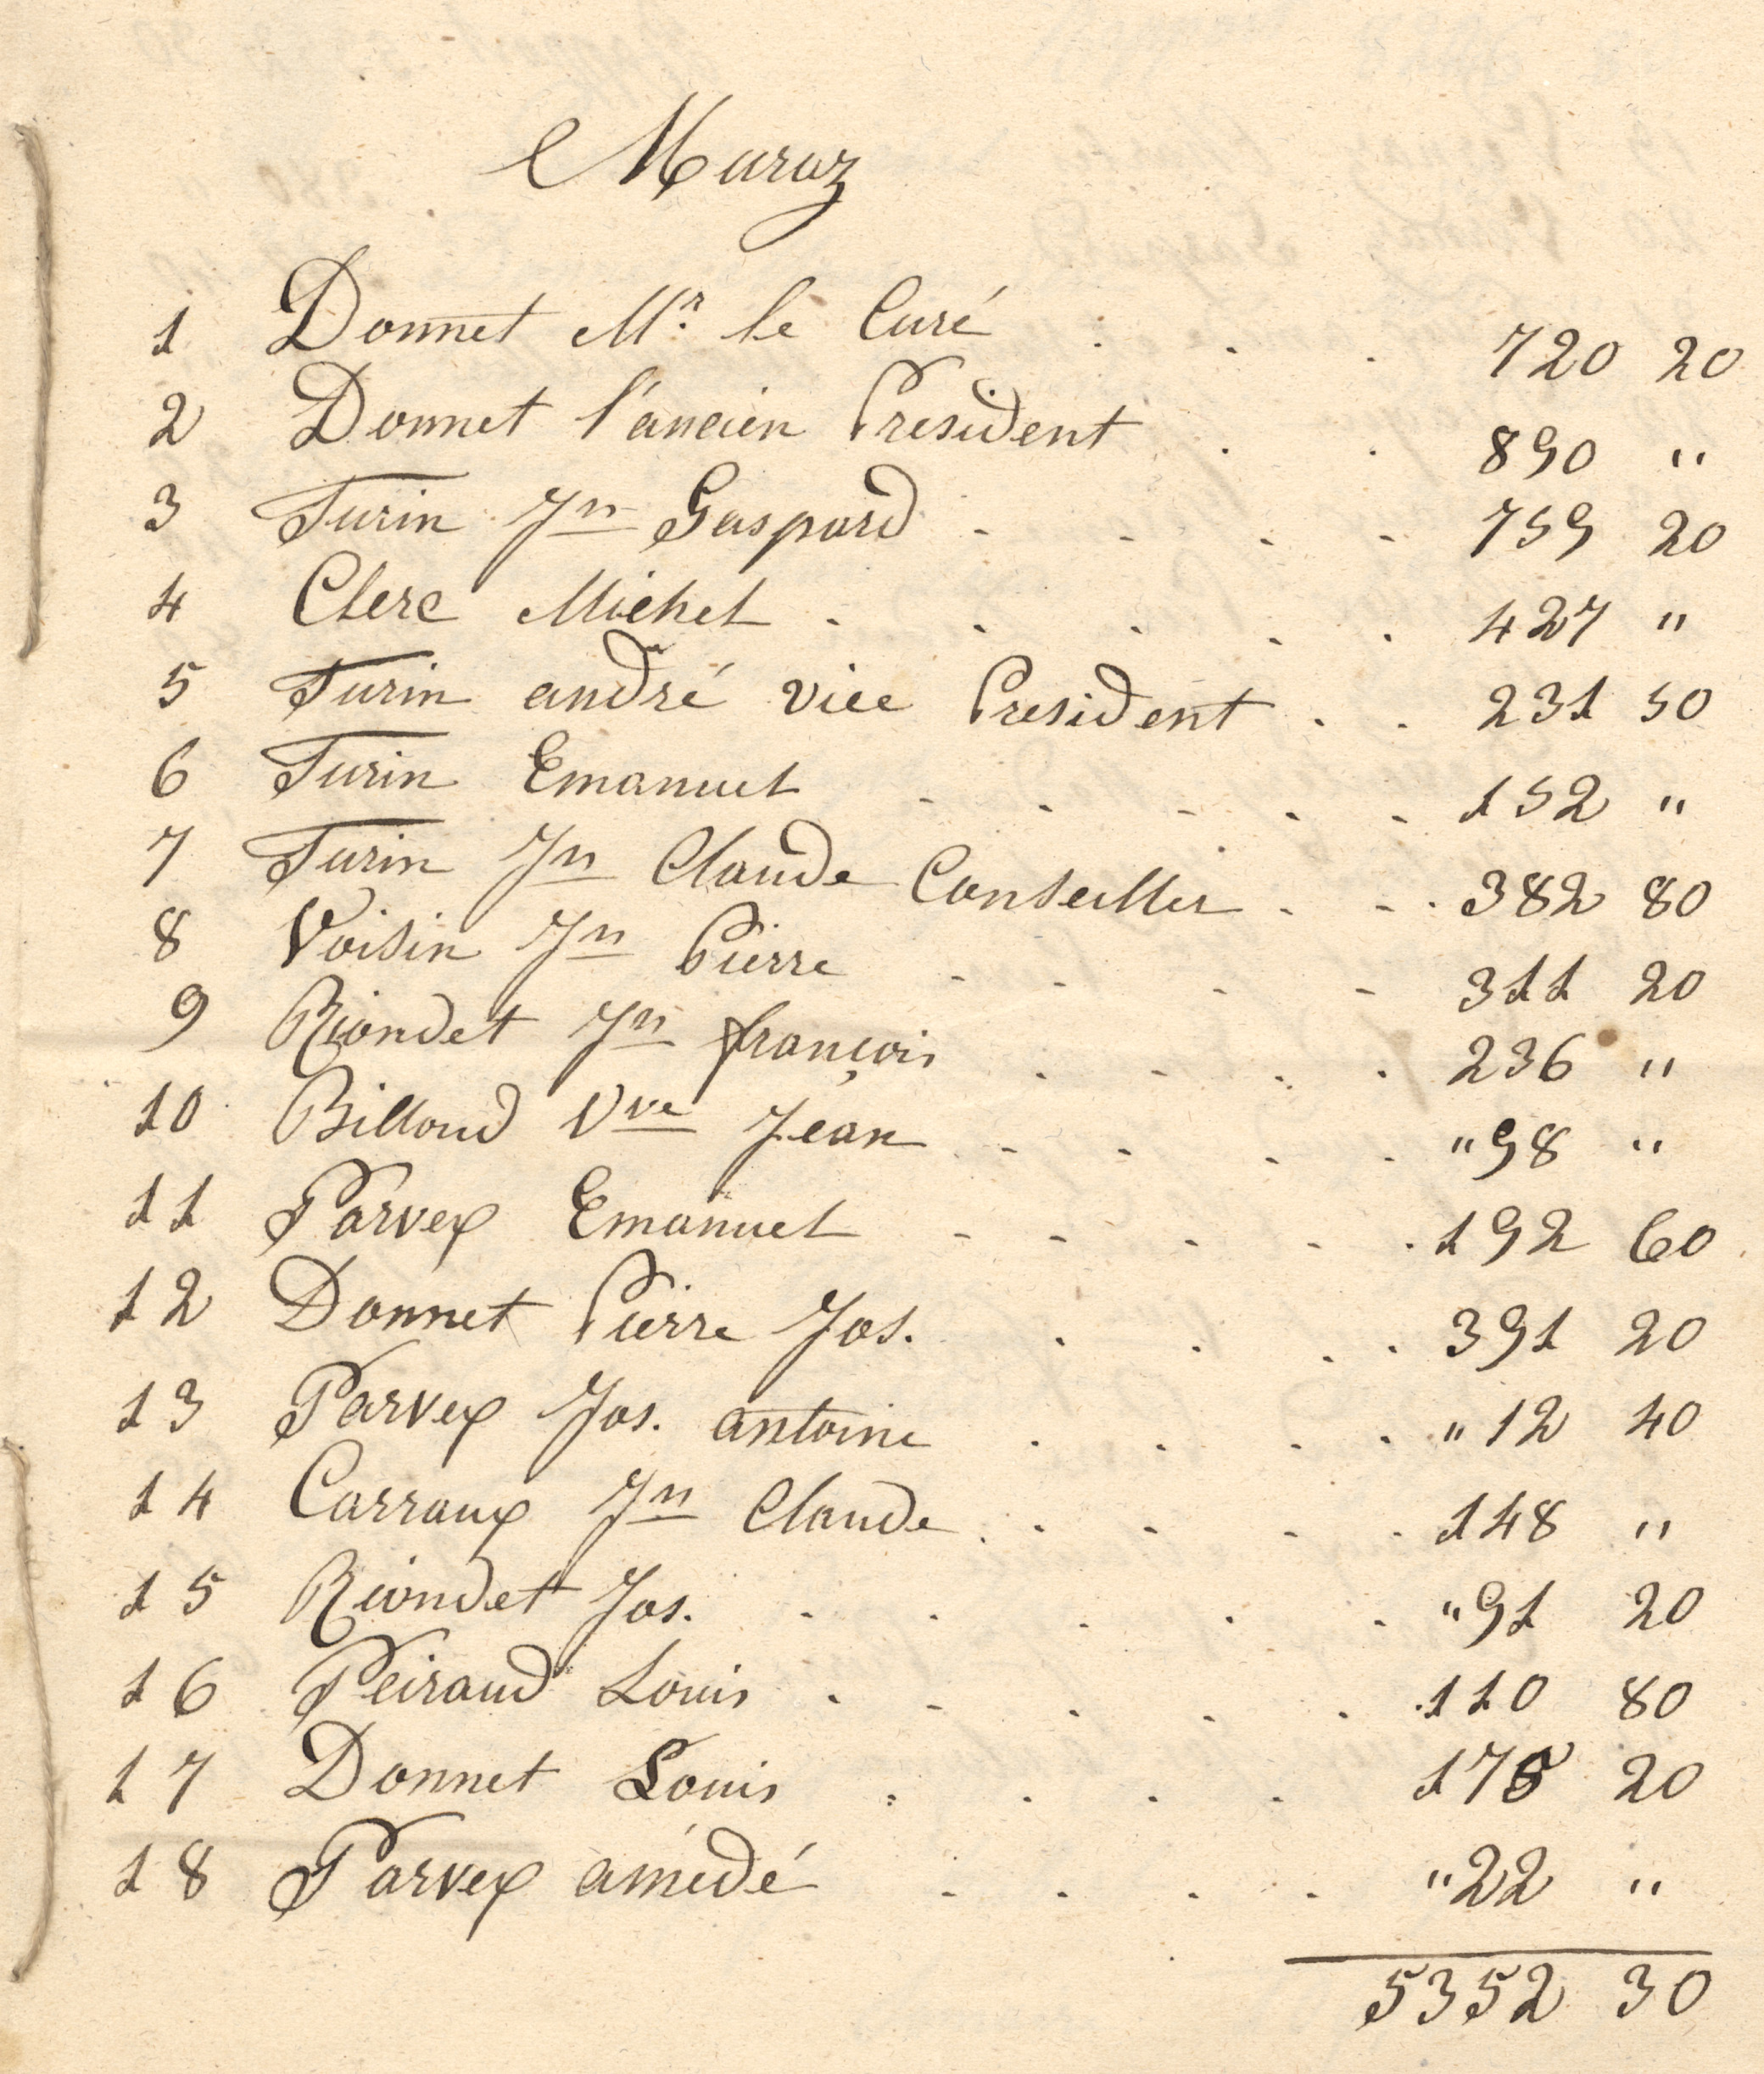 Muraz
1 Donnet Mr. le Curé . . . 720 20
2 Donnet l'ancien President . . 890 "
3 Turin Jn Gaspard - - - - 759 20
4 Clerc Michel . . . . . 427 "
5 Turin andré vice President . . 231 50
6 Turin Emanuel - - - - - 152 "
7 Turin Jn Claude Conseiller . - . 382 80
8 Voisin Jn Pierre - - - - 311 20
9 Riondet Jn françois . - . . 236 "
10 Billoud Vve Jean - - . . . " 98 "
11 Parvex Emanuel - - - - . 192 60
12 Donnet Pierre Jos. . . . . 391 20
13 Parvex Jos. antoine . . . . " 12 40
14 Carraux Jn Claude . . - - . 148 "
15 Riondet Jos. . . . . . " 91 20
16 Peiraud Louis . - . . . 110 80
17 Donnet Louis . . . . 176 20
18 Parvex amédé . . . . " 22 "
5352 30